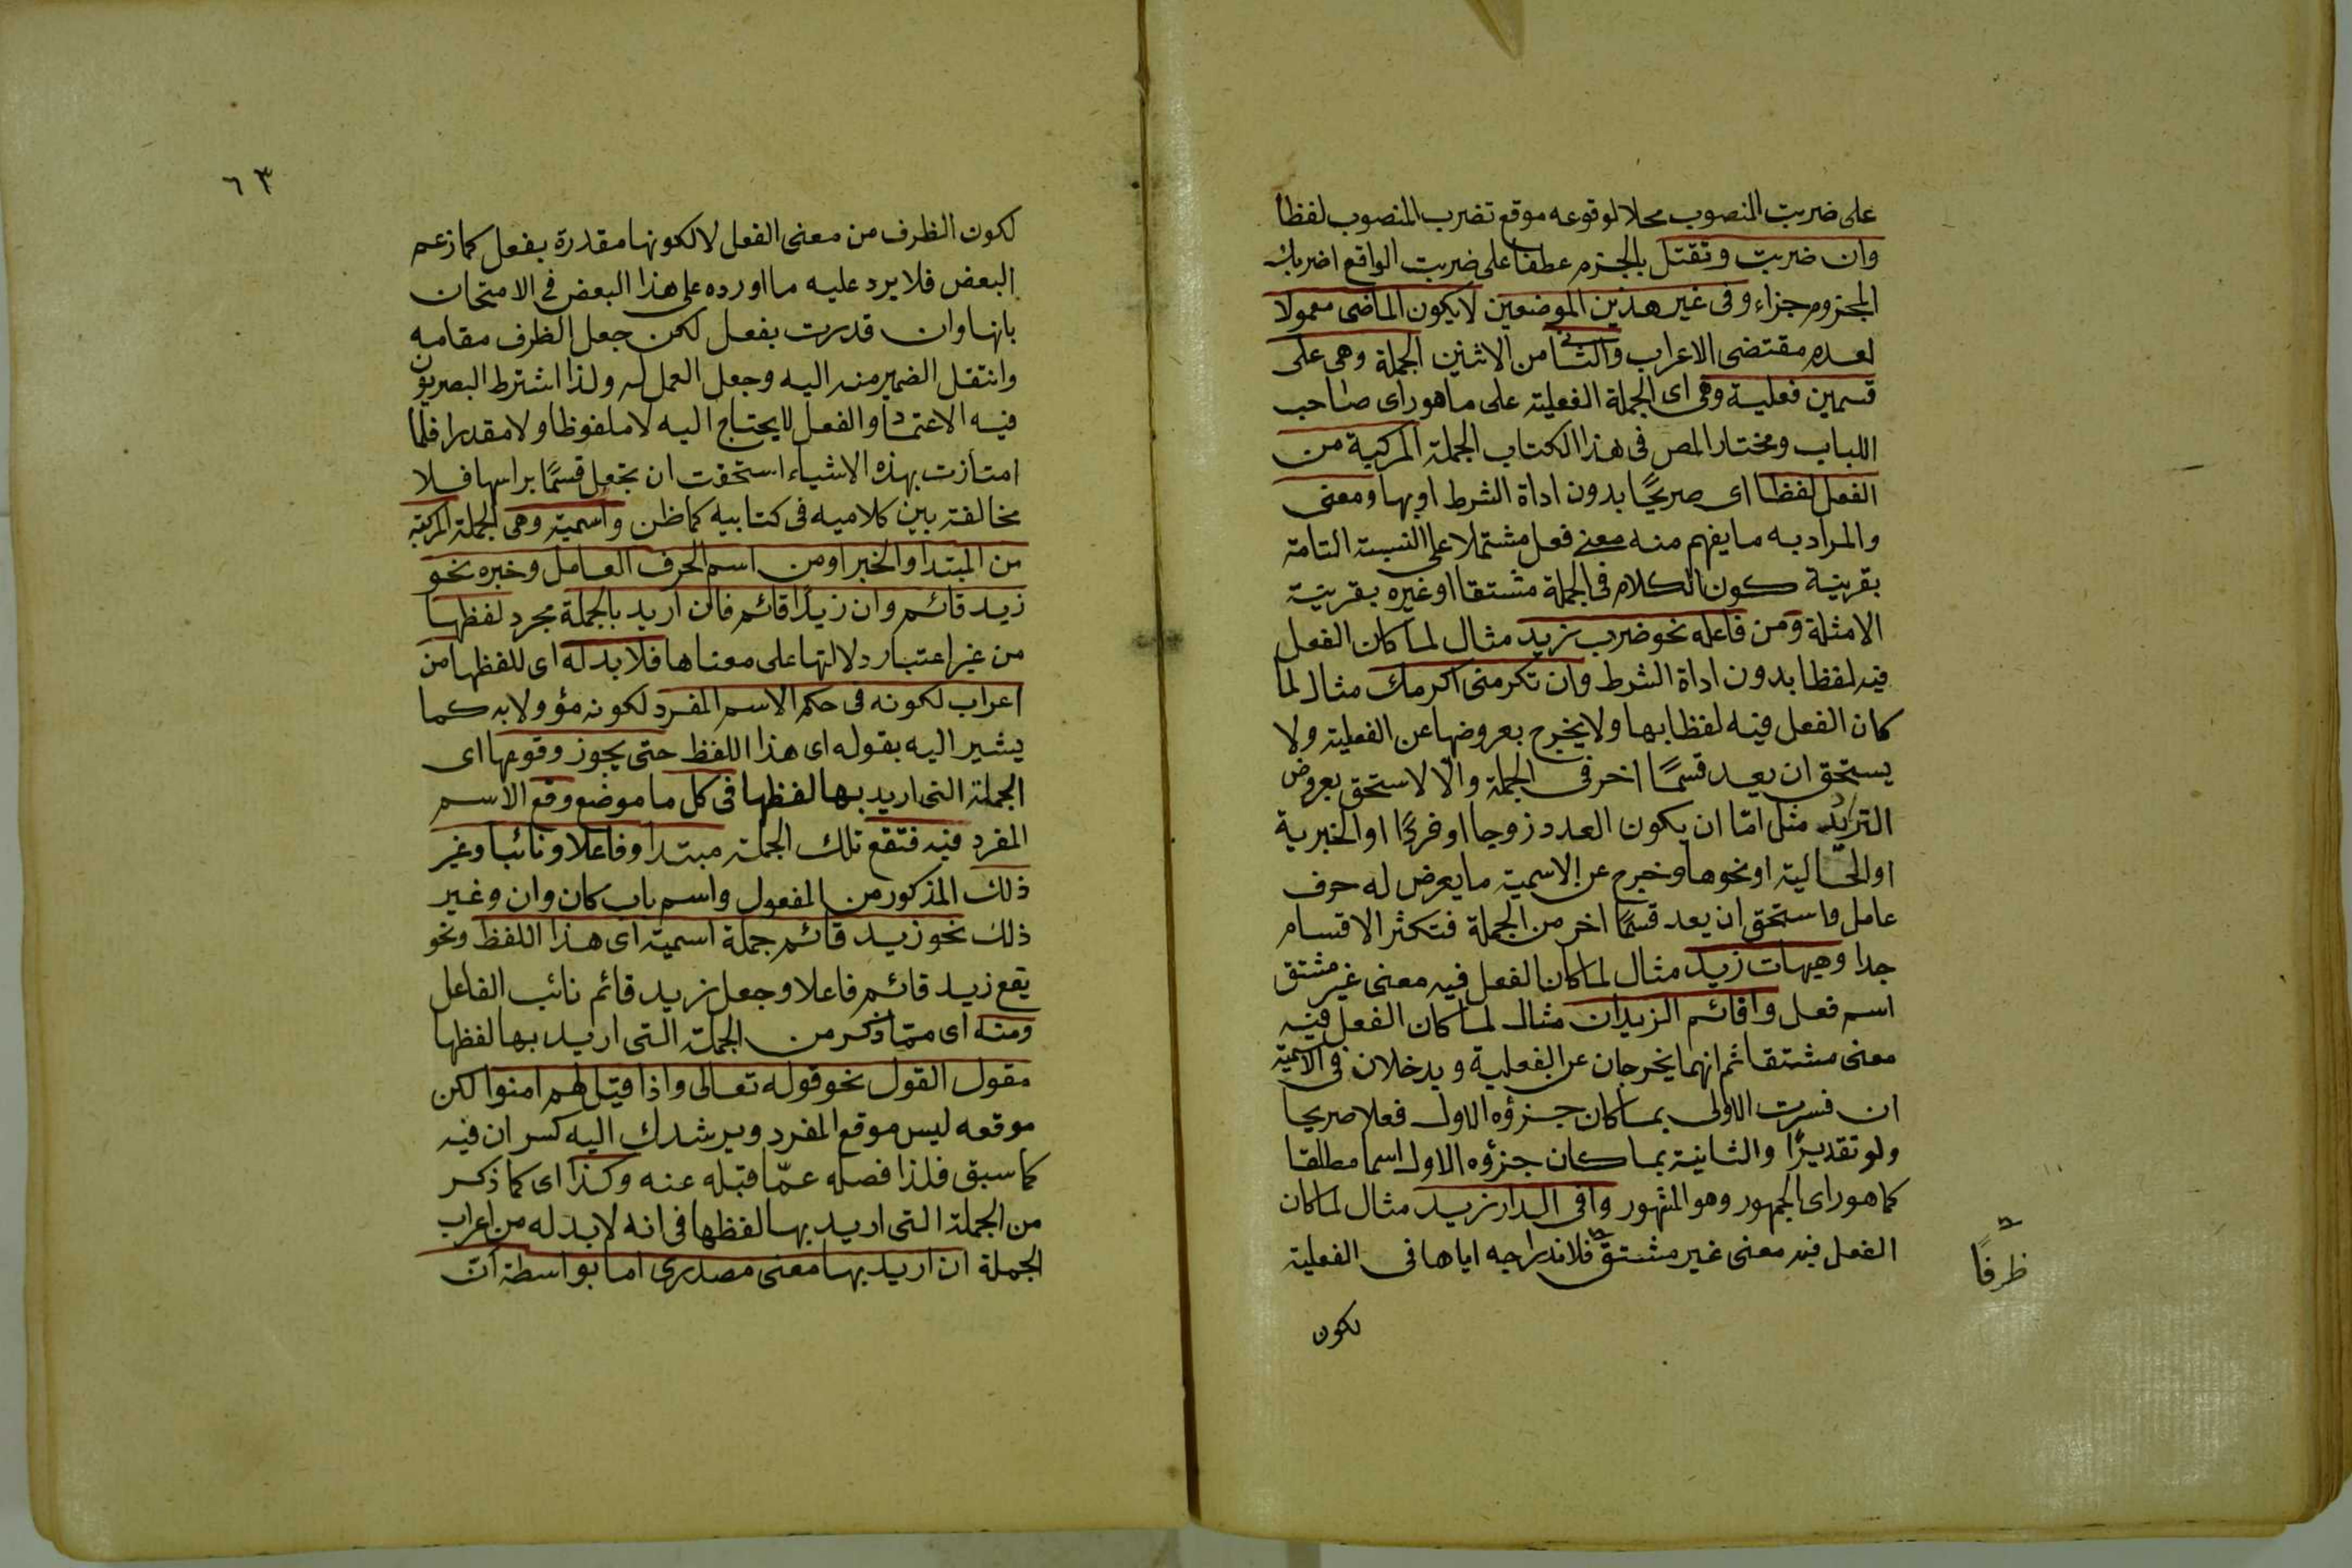 على ضربت المنصوب محلا لوقوعه موقع تضرب المنصوب لفظا
وان ضربت وتقتل بالجزم عطفا على ضربت الواقع اضربك
المجزوم جزاء وفى غير هذين الموضعين لا يكون الماضى معمولا
لعدم مقتضى الاعراب والثانى من الاثنين الجملة وهى على
قسمين فعلية وهى اى الجملة الفعلية على ما هو راى صاحب
اللباب ومختار المص فى هذا الكتاب الجملة المركبة من
الفعل لفظا اى صريحًا بدون اداة الشرط او بها ومعنى
والمراد به ما يفهم منه معنى فعل مشتملا على النسبة التامة
بقرينة كون الكلام فى الجملة مشتقا او غيره بقرينة
الامثلة ومن فاعله نحو ضرب زيد مثال لما كان الفعل
فيه لفظا بدون اداة الشرط وان تكرمنى اكرمك مثال لما
كان الفعل فيه لفظا بها ولا يخرج بعروضها عن الفعلية ولا
يستحق ان يعد قسمًا اخر فى الجملة والّا لاستحق بعروض
الترديد مثل امّا ان يكون العدد زوجا او فردًا او الخبرية
او الحالية او نحوها وخرج عن الاسمية ما يعرض له حرف
عامل واستحق ان يعد قسمًا اخر من الجملة فتكثر الاقسام
جدا وهيهات زيد مثال لما كان الفعل فيه معنى غير مشتق
اسم فعل واقائم الزيدان مثال لما كان الفعل فيه
معنى مشتقا ثم انهما يخرجان عن الفعلية ويدخلان فى الاسمية
ان فسرت الاولى بما كان جزؤه الاول فعلا صريحا
ولو تقديرًا والثانية بما كان جزؤه الاول اسما مطلقا
كما هو راى الجمهور وهو المشهور وافى الدار زيد مثال لما كان
الفعل فيه معنى غير مشتق فلاندراجه اياها فى الفعلية
ظرفًا
لكون
٦٣
لكون الظرف من معنى الفعل لا لكونها مقدرة بفعل كما زعم
البعض فلا يرد عليه ما اورده على هذا البعض فى الامتحان
بانها وان قدرت بفعل لكن جعل الظرف مقامه
وانتقل الضمير منه اليه وجعل العمل له ولذا اشترط البصريون
فيه الاعتماد والفعل لا يحتاج اليه لا ملفوظا ولا مقدرا فلما
امتازت بهذه الاشياء استحقت ان تجعل قسمًا براسها فلا
مخالفة بين كلاميه فى كتابيه كما ظن واسمية وهى الجملة المركبة
من المبتدا والخبر او من اسم الحرف العامل وخبره نحو
زيد قائم وان زيدًا قائم فان اريد بالجملة مجرد لفظها
من غير اعتبار دلالتها على معناها فلا بد له اى للفظها من
اعراب لكونه فى حكم الاسم المفرد لكونه مؤولا به كما
يشير اليه بقوله اى هذا اللفظ حتى يجوز وقوعها اى
الجملة التى اريد بها لفظها فى كل ما موضع وقع الاسم
المفرد فيه فتقع تلك الجملة مبتدا وفاعلا ونائبا وغير
ذلك المذكور من المفعول واسم باب كان وان وغير
ذلك نحو زيد قائم جملة اسمية اى هذا اللفظ ونحو
يقع زيد قائم فاعلا وجعل زيد قائم نائب الفاعل
ومنه اى ممّا ذكر من الجملة التى اريد بها لفظها
مقول القول نحو قوله تعالى واذا قيل لهم امنوا لكن
موقعه ليس موقع المفرد ويرشدك اليه كسر ان فيه
كما سبق فلذا فصله عمّا قبله عنه وكذا اى كما ذكر
من الجملة التى اريد بها لفظها فى انه لا بد له من اعراب
الجملة ان اريد بها معنى مصدرى اما بواسطة ان